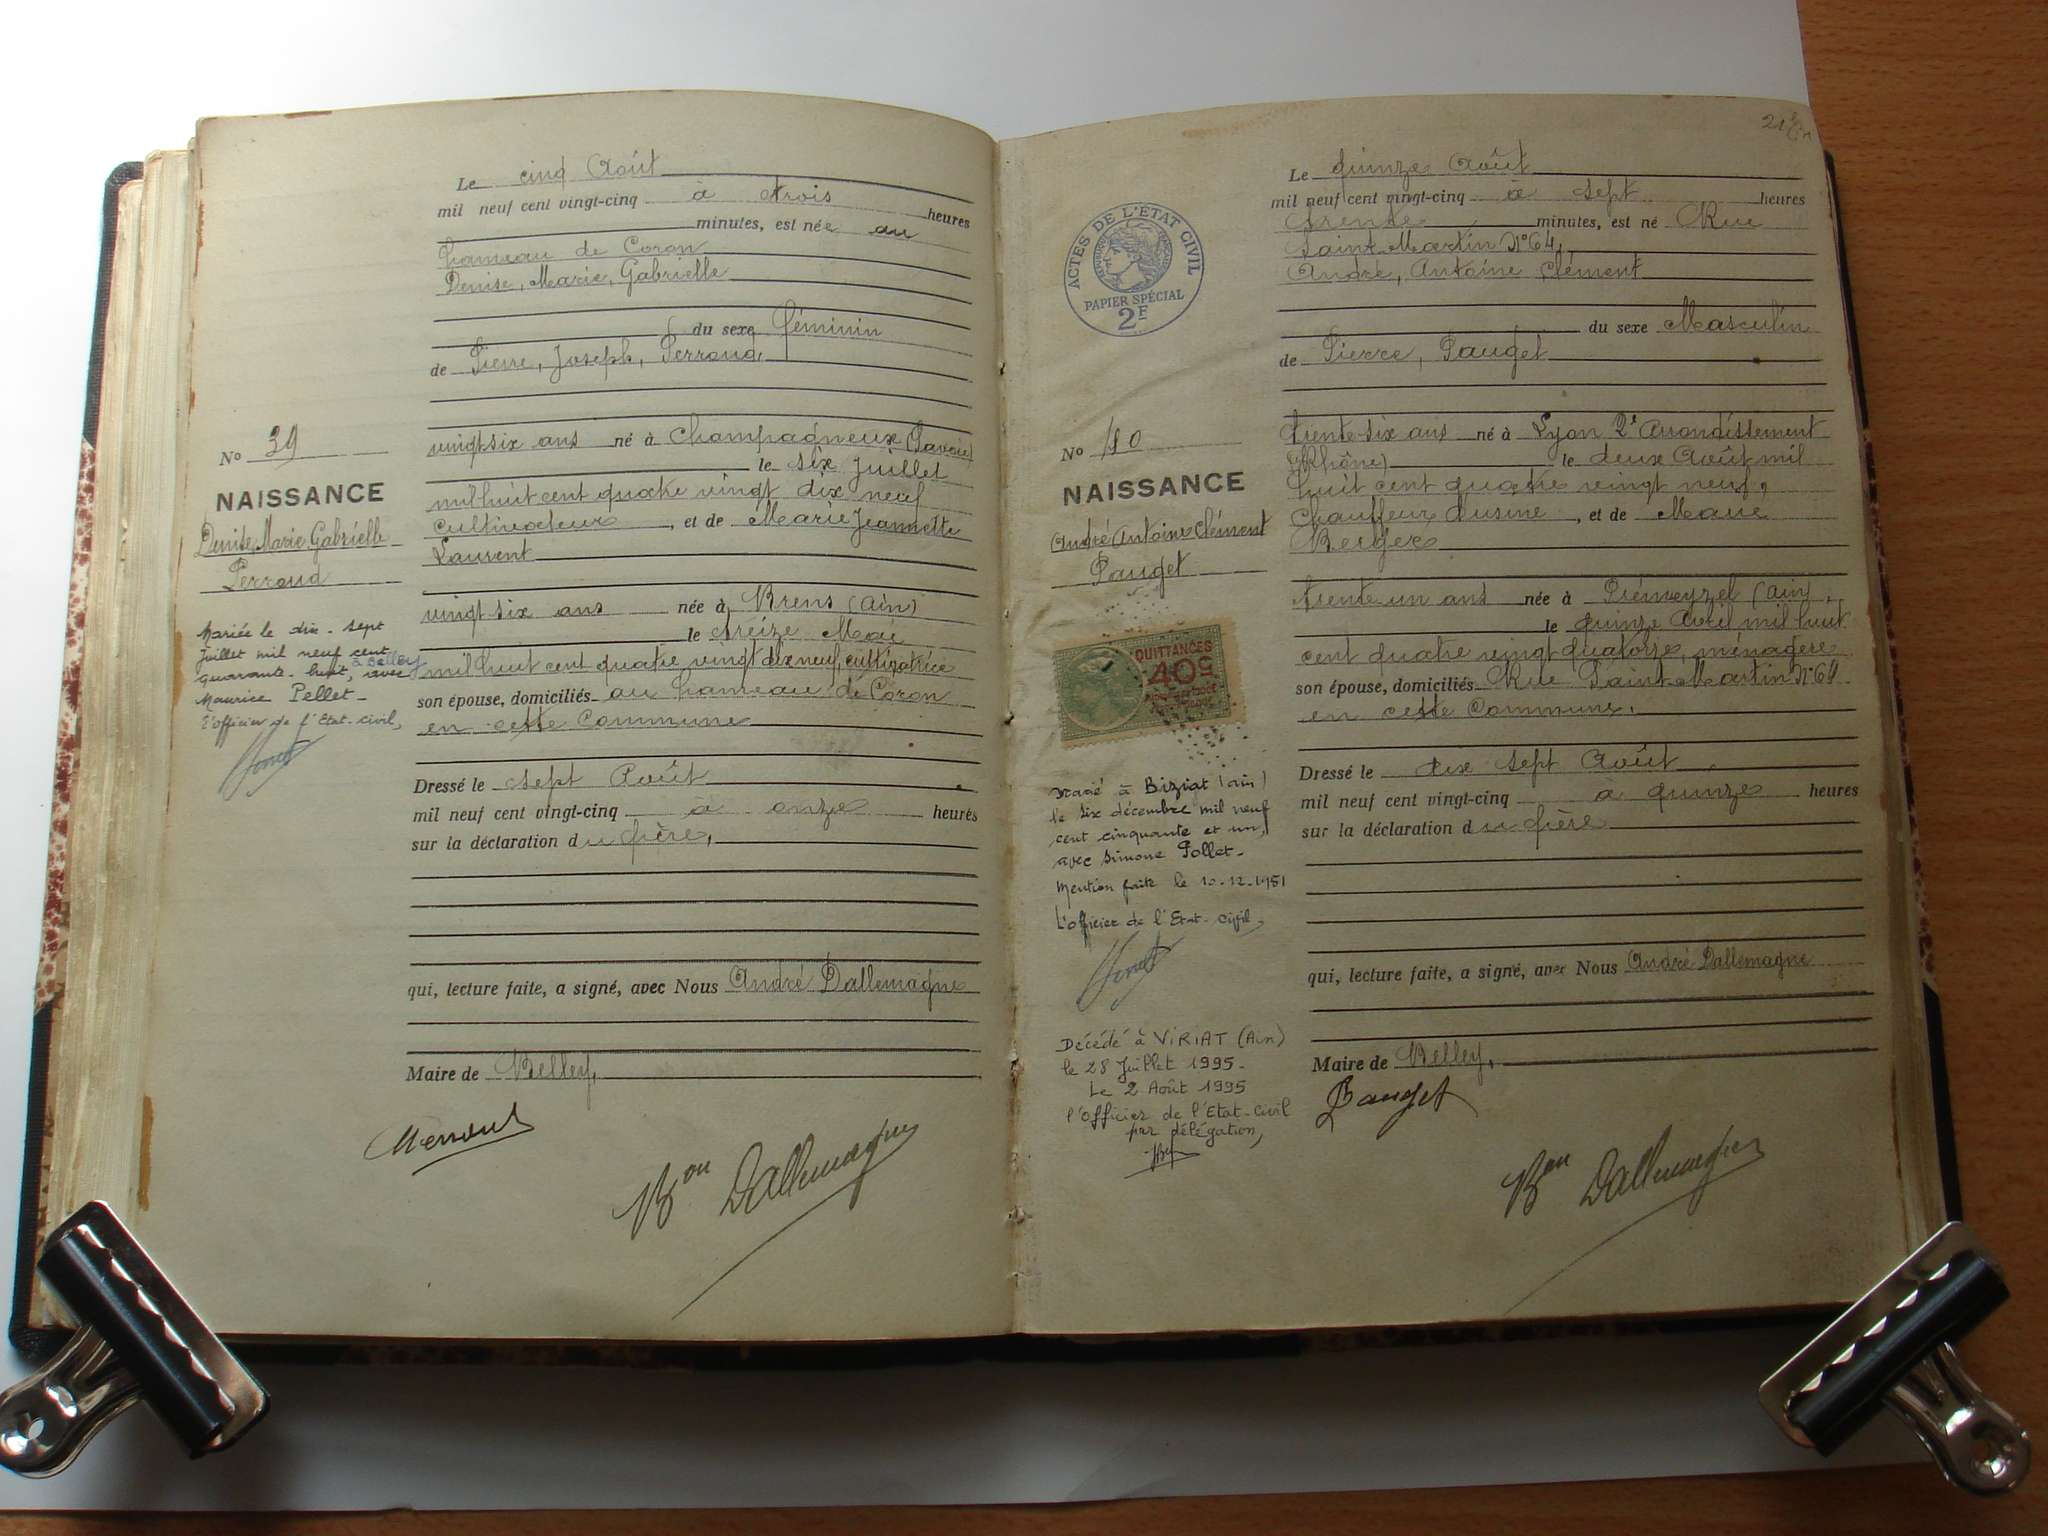 Le cinq Août
mil neuf cent vingt-cinq à trois heures
minutes, est née au
hameau de Coron
Denise, Marie, Gabrielle
du sexe féminin
de Pierre, Joseph, Perroud,
vingt-six ans né à Champagneux (Savoie)
le six Juillet
mil huit cent quatre vingt dix neuf
cultivateur, et de Marie Jeannette
Laurent
vingt six ans née à Brens (Ain)
le treize Mai
mil huit cent quatre vingt dix neuf, cultivatrice
son épouse, domiciliés au hameau de Coron
en cette Commune
Dressé le sept Août
mil neuf cent vingt-cinq à onze heures
sur la déclaration du père,
qui, lecture faite, a signé, avec Nous André Dallemagne
Maire de Belley,
Bon Dallemagne
No 39
NAISSANCE
Denise Marie Gabrielle
Perroud
Mariée le dix-sept
Juillet mil neuf cent
quarante-huit, à Belley avec
Maurice Pellet-
l'officier de l'Etat-civil,
21
Le quinze Août
mil neuf cent vingt-cinq à sept heures
trente minutes, est né Rue
Saint Martin N°64,
André, Antoine Clément
du sexe Masculin
de Pierre, Pauget
trente-six ans né à Lyon 2e Arrondissement
(Rhône) le deux Août mil
huit cent quatre vingt neuf,
Chauffeur d'usine, et de Marie
Berger
trente un ans née à Prémeyzel (Ain),
le quinze Avril mil huit
cent quatre vingt quatorze, ménagère
son épouse, domiciliés Rue Saint-Martin N°64
en cette Commune.
Dressé le dix sept Août
mil neuf cent vingt-cinq à quinze heures
sur la déclaration du père
qui, lecture faite, a signé, avec Nous André Dallemagne
Maire de Belley,
Pauget
Bon Dallemagne
ACTES DE L'ÉTAT CIVIL
PAPIER SPÉCIAL
2F
No 40
NAISSANCE
André Antoine Clément
Pauget
QUITTANCES
40c
Marié à Biziat (Ain)
le six décembre mil neuf
cent cinquante et un,
avec Simone Pollet-
Mention faite le 10-12-1951
L'officier de l'Etat-civil,
Décédé à VIRIAT (Ain)
le 28 Juillet 1995-
Le 2 Août 1995
l'Officier de l'Etat-Civil
par délégation,